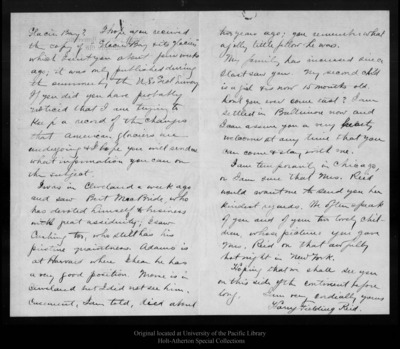 Glacier Bay? I hope you received
the copy of "Glacier Bay and its Glaciers"
which I sent you a few weeks
ago; it was only published during
the summer by the U.S. Geol. Survey.
If you did you have probably
noticed that I am trying to
keep a record of the changes
that American glaciers are
undergoing & I hope you will send me
what information you can on
the subject.
I was in Cleveland a week ago
and saw Bert MacBride, who
has devoted himself to business
with great assiduity; I saw
Cushing too, who still has his
pristine quaintness. Adams is
at Harvard where I hear he has
a very good position. Morse is in
Cleveland but I did not see him.
I am told, died about
two years ago; you remember what
a jolly little fellow he was.
My family has increased since
I last saw you. My second child
is a girl & is now 15 months old.
Won't you ever come east? I am
settled in Baltimore now and
I can assure you a very hearty
welcome at any time that you
can come & stay with me.
I am temporarily in Chicago,
or I am sure that Mrs. Reid
would want me to send you her
kindest regards. We often speak
of you and of your two lovely children,
whose picture you gave
Mrs. Reid on that awfully
hot night in New York.
Hoping that we shall see you
on this side of the continent before
long. I am very cordially yours
Harry Fielding Reid.
Original located at University of the Pacific Library
Holt-Atherton Special Collections